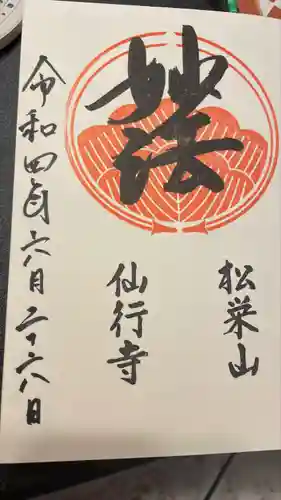 松栄山
妙法
仙行寺
令和四年六月二十六日